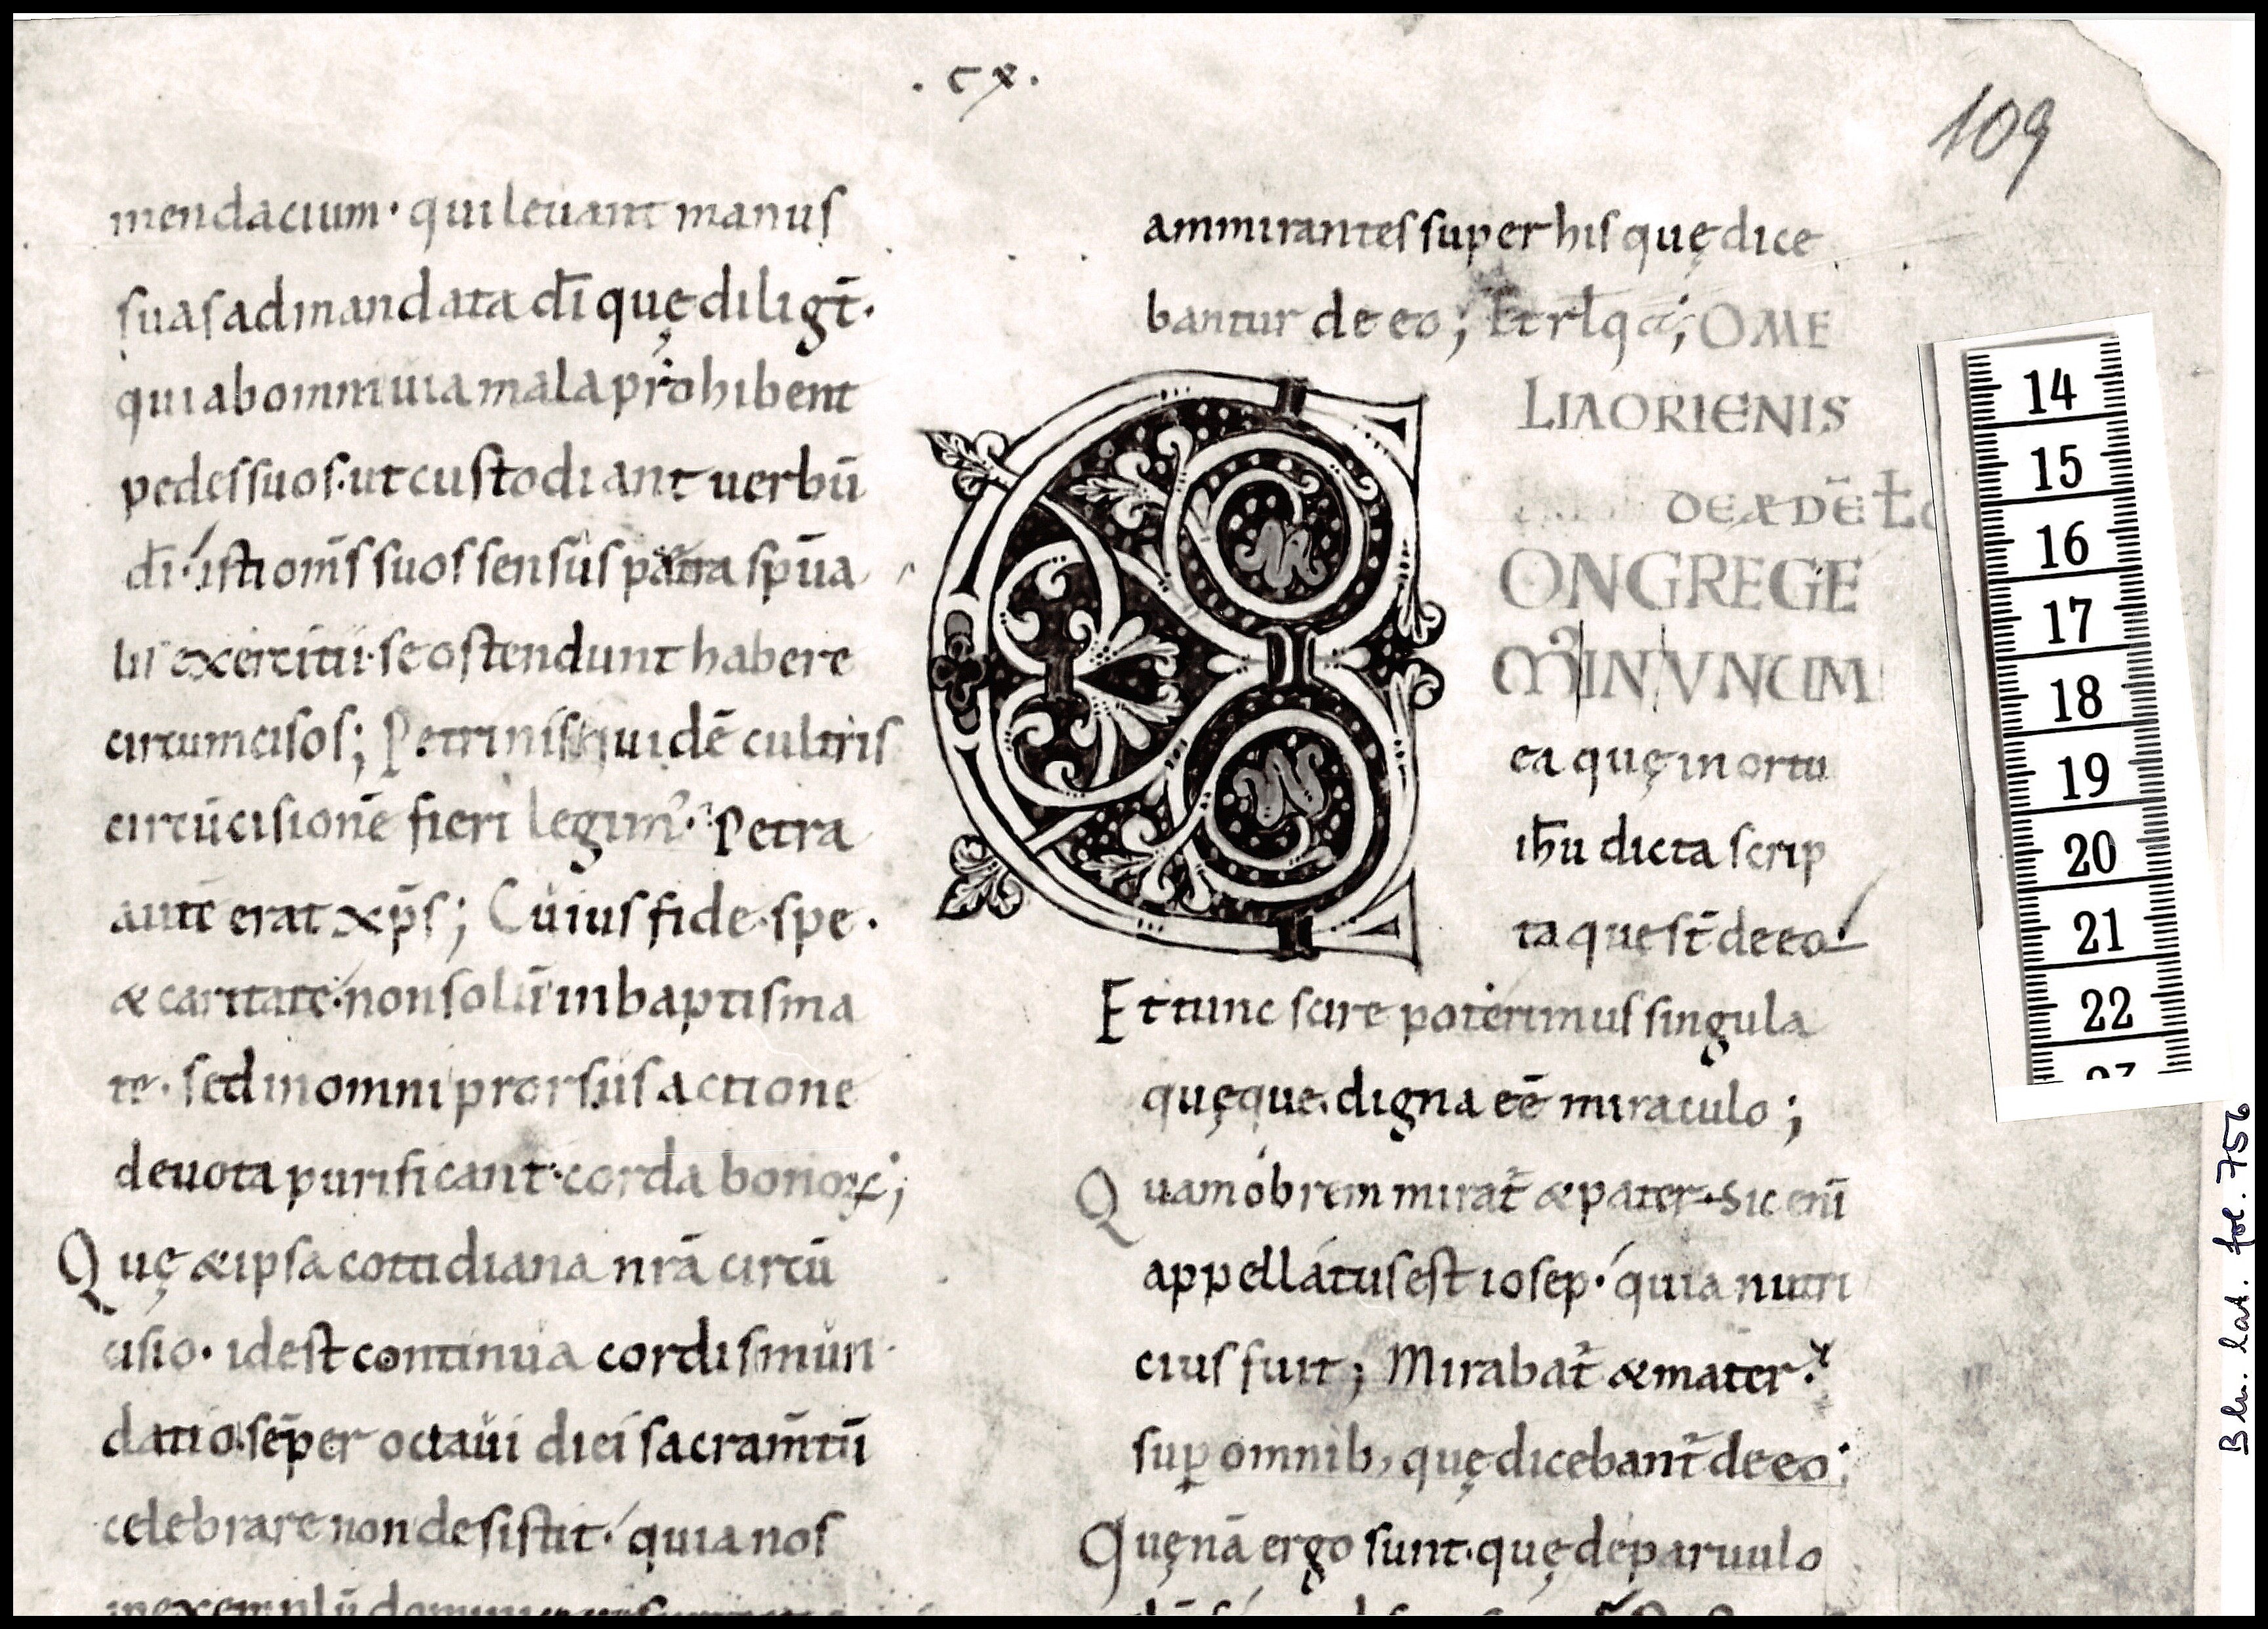 . cx .
109
mendacium· qui leuant manus
suas ad mandata dī quę diligt̄·
qui ab omni uia mala prohibent
pedes suos· ut custodiant uerbū
dī· isti om̄s suos sensus
exercitu· se ostendunt habere
circumcisos; Petrinis quidē cultris
circūcisionē fieri legim᾿· Petra
autē erat xp̄s; Cuius fide· spe·
& caritate· non solū in baptisma
te· sed in omni prorsus actione
deuota purificant᷑· corda bonoꝝ;
Quę & ipsa cottidiana nrā circū
cisio· id est continua cordis mun
datio· sēper octaui diei sacram̄tū
celebrare non desistit· quia nos
in exemplū
ammirantes super his quę dice
bantur de eo; Et rl̄q̄a; OME
LIA ORIENIS
DE EADĒ Ł
CONGREGE
M᾿ IN VNUM
ea quę in ortu
ih̄u dicta scrip
taque st̄ de eo·
Et tunc scire poterimus singula
quęque· digna eē miraculo;
Quam ob rem mirat᷑ & pater· Sic enī
appellatus est iosep· quia nutri
cius fuit; Mirabat᷑ & mater·
suꝑ omnib, quę dicebant᷑ de eo;
Quęnā ergo sunt· quę de paruulo
14
15
16
17
18
19
20
21
22
23
Bln. lat. fol. 756